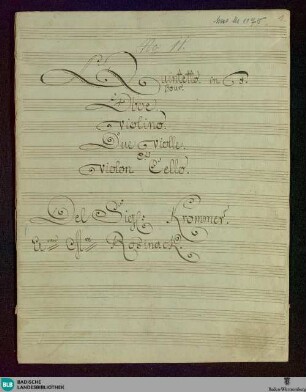 Mus. Ms. 1175
No 11.
Quintetto in C.
pour
Oboe
Violino.
Due Viole.
et
Violon Cello.
Del Sigr: Krommer.
BLB BADISCHE
LANDESBIBLIOTHEK
Baden-Württemberg